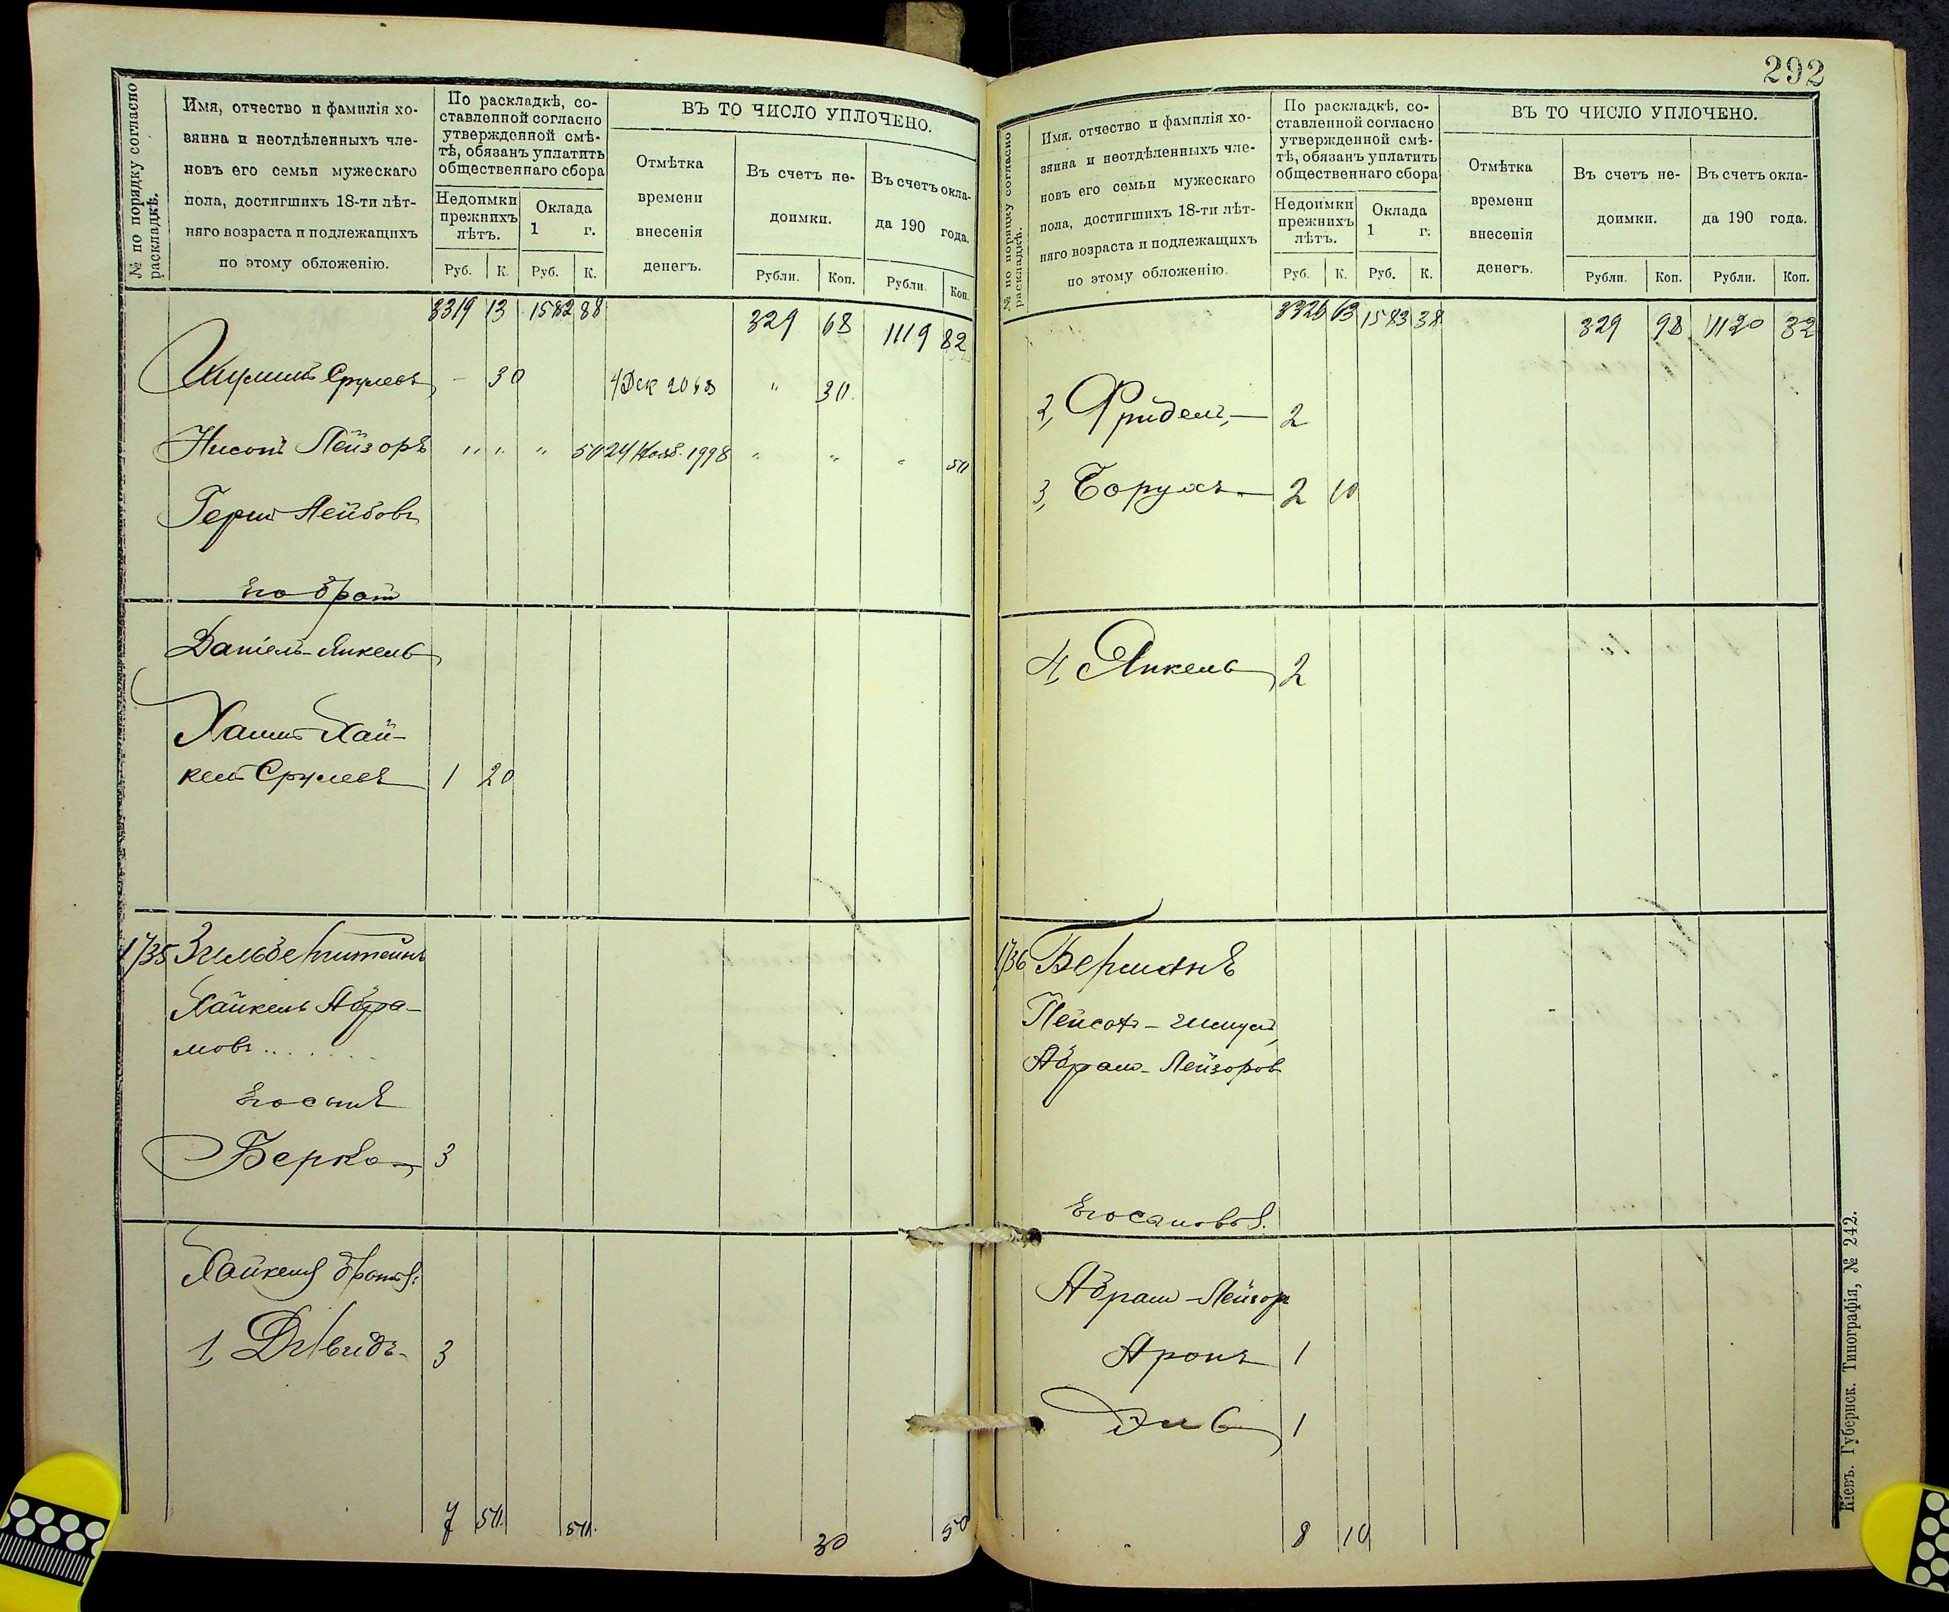 292
№ по порядку согласно раскладкѣ.
Имя, отчество и фамилія хо-
зяина и неотдѣленныхъ чле-
новъ его семьи мужескаго
пола, достигшихъ 18-ти лѣт-
няго возраста и подлежащихъ
по этому обложенію.
По раскладкѣ, со-
ставленной согласно
утвержденной смѣ-
тѣ, обязанъ уплатить
общественнаго сбора
Недоимки
прежнихъ
лѣтъ.
Оклада
1 г.
Руб. К. Руб. К.
ВЪ ТО ЧИСЛО УПЛОЧЕНО.
Отмѣтка
времени
внесенія
денегъ.
Въ счетъ не-
доимки.
Въ счетъ окла-
да 190 года.
Рубли. Коп. Рубли. Коп.
3319 13 1582 88 329 68 1119 82
Срулевъ - 30 " 30
Нисонъ Лейзоръ " " " 50 24 Нояб. " " " 50
Герш Лейбовъ
Его братъ
Даніель-Янкель
Хаимъ Хай-
кель Срулевъ 1 20
1735 Зильберштейнъ
Хайкель Абра-
мовъ . . . . . .
Его сынъ
Берко 3
Хайкеля братья:
1, Давидъ 3
7 50 50 30 50
№ по порядку согласно раскладкѣ.
Имя, отчество и фамилія хо-
зяина и неотдѣленныхъ чле-
новъ его семьи мужескаго
пола, достигшихъ 18-ти лѣт-
няго возраста и подлежащихъ
по этому обложенію.
По раскладкѣ, со-
ставленной согласно
утвержденной смѣ-
тѣ, обязанъ уплатить
общественнаго сбора
Недоимки
прежнихъ
лѣтъ.
Оклада
1 г.
Руб. К. Руб. К.
ВЪ ТО ЧИСЛО УПЛОЧЕНО.
Отмѣтка
времени
внесенія
денегъ.
Въ счетъ не-
доимки.
Въ счетъ окла-
да 190 года.
Рубли. Коп. Рубли. Коп.
3326 63 1583 38 329 98 1120 32
2, Фридель, 2
3, Борухъ 2 10
4, Янкель 2
1736 Берманъ
Пейсахъ -
Абрам-Лейзоров
Его сыновья.
Абрам-Лейзор
Аронъ 1
Эль 1
8 10
Кіевъ. Губернск. Типографія, № 242.